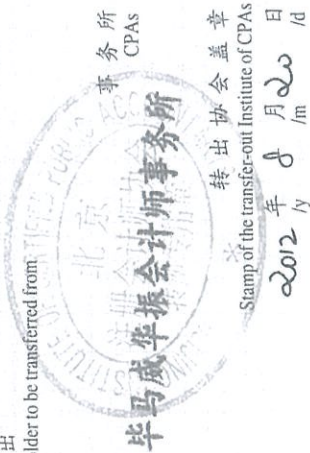 出
lder to be transferred from
事务所
CPAs
毕马威华振会计师事务所
转出协会盖章
Stamp of the transfer-out Institute of CPAs
2012 年 8 月 20 日
/y /m /d
北京